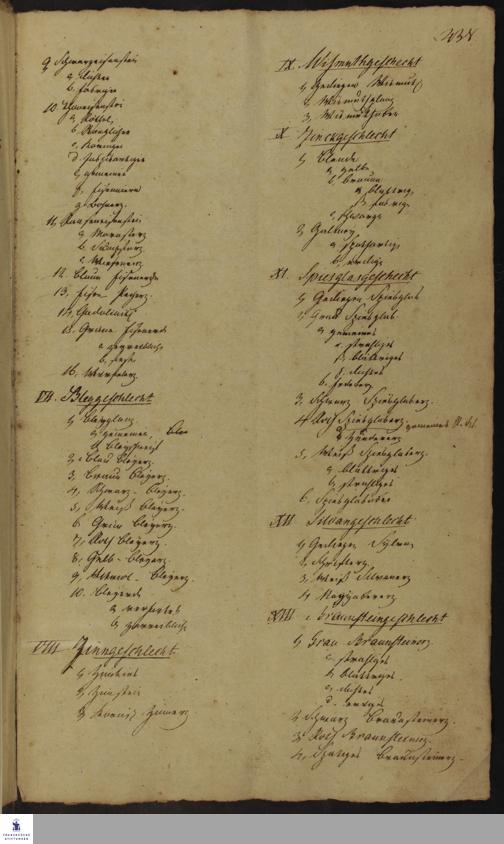 9, Schwarzeisenstein
a, dichter
b, fasriger
10, Thoneisenstein
a, Röthel,
b, Stänglicher
c, Körniger
d, Jaspisartiger
e, gemeiner
f, Eisenniere
g, Bohnerz.
11, Raseneisenstein
a, Morasterz
b, Sumpferz
c, Wiesenerz
12. Blaue Eisenerde
13, Eisen Pecherz.
14, Gadolinit
15. Grüne Eisenerde
a, zerreibliche
b, feste
16. Würfelerz.
VII. Bleygeschlecht
1, Bleyglanz
a, gemeiner,
b, Bleyschweif
2, Blau Bleyerz.
3, Braun Bleyerz.
4, Schwarz- Bleyerz.
5, Weiß Bleyerz.
6 Grün Bleyerz.
7, Roth Bleyerz.
8, Gelb- Bleyerz.
9, Bleyerz.
10. Bleyerde
a, verhärtete
b, zerreibliche
VIII Zinngeschlecht
1, Zinnkies
2, Zinnstein
3, Kornisch Zinnerz
IX Wismuthgeschlecht
1, Gediegen Wismuth
2, Wismuthglanz
3, Wismuthocker
X Zinckgeschlecht
1, Blende
a, gelbe
b, braune
α, blättrige,
β, fasrige,
c, schwarze
2, Galmey
XI. Spiesglasgeschlecht
1, Gediegen Spiesglas
2, Grau Spiesglas.
a, gemeines
α, strahliges
β, blättriges
γ, dichtes
b, Federerz
3, Schwarz Spiesglaserz.
4, Roth Spiesglaserz
a, gemeines
b, Zundererz
5, Weiß Spiesglaserz.
a, blättriges
b, strahliges
6, Spiesglasocker
XII Silvangeschlecht
1, Gediegen Sylvan
2, Schrifterz
3, Weiß Silvanerz
4, Nagyagererz
XIII. Braunsteingeschlecht
1, Grau Braunsteinerz
a, strahliges
b, blättriges,
c, dichtes
d. erdiges
2, Schwarz Braunsteinerz.
3, Roth Braunsteinerz.
4, Braunsteinerz.
FRANCKESCHE
STIFTUNGEN